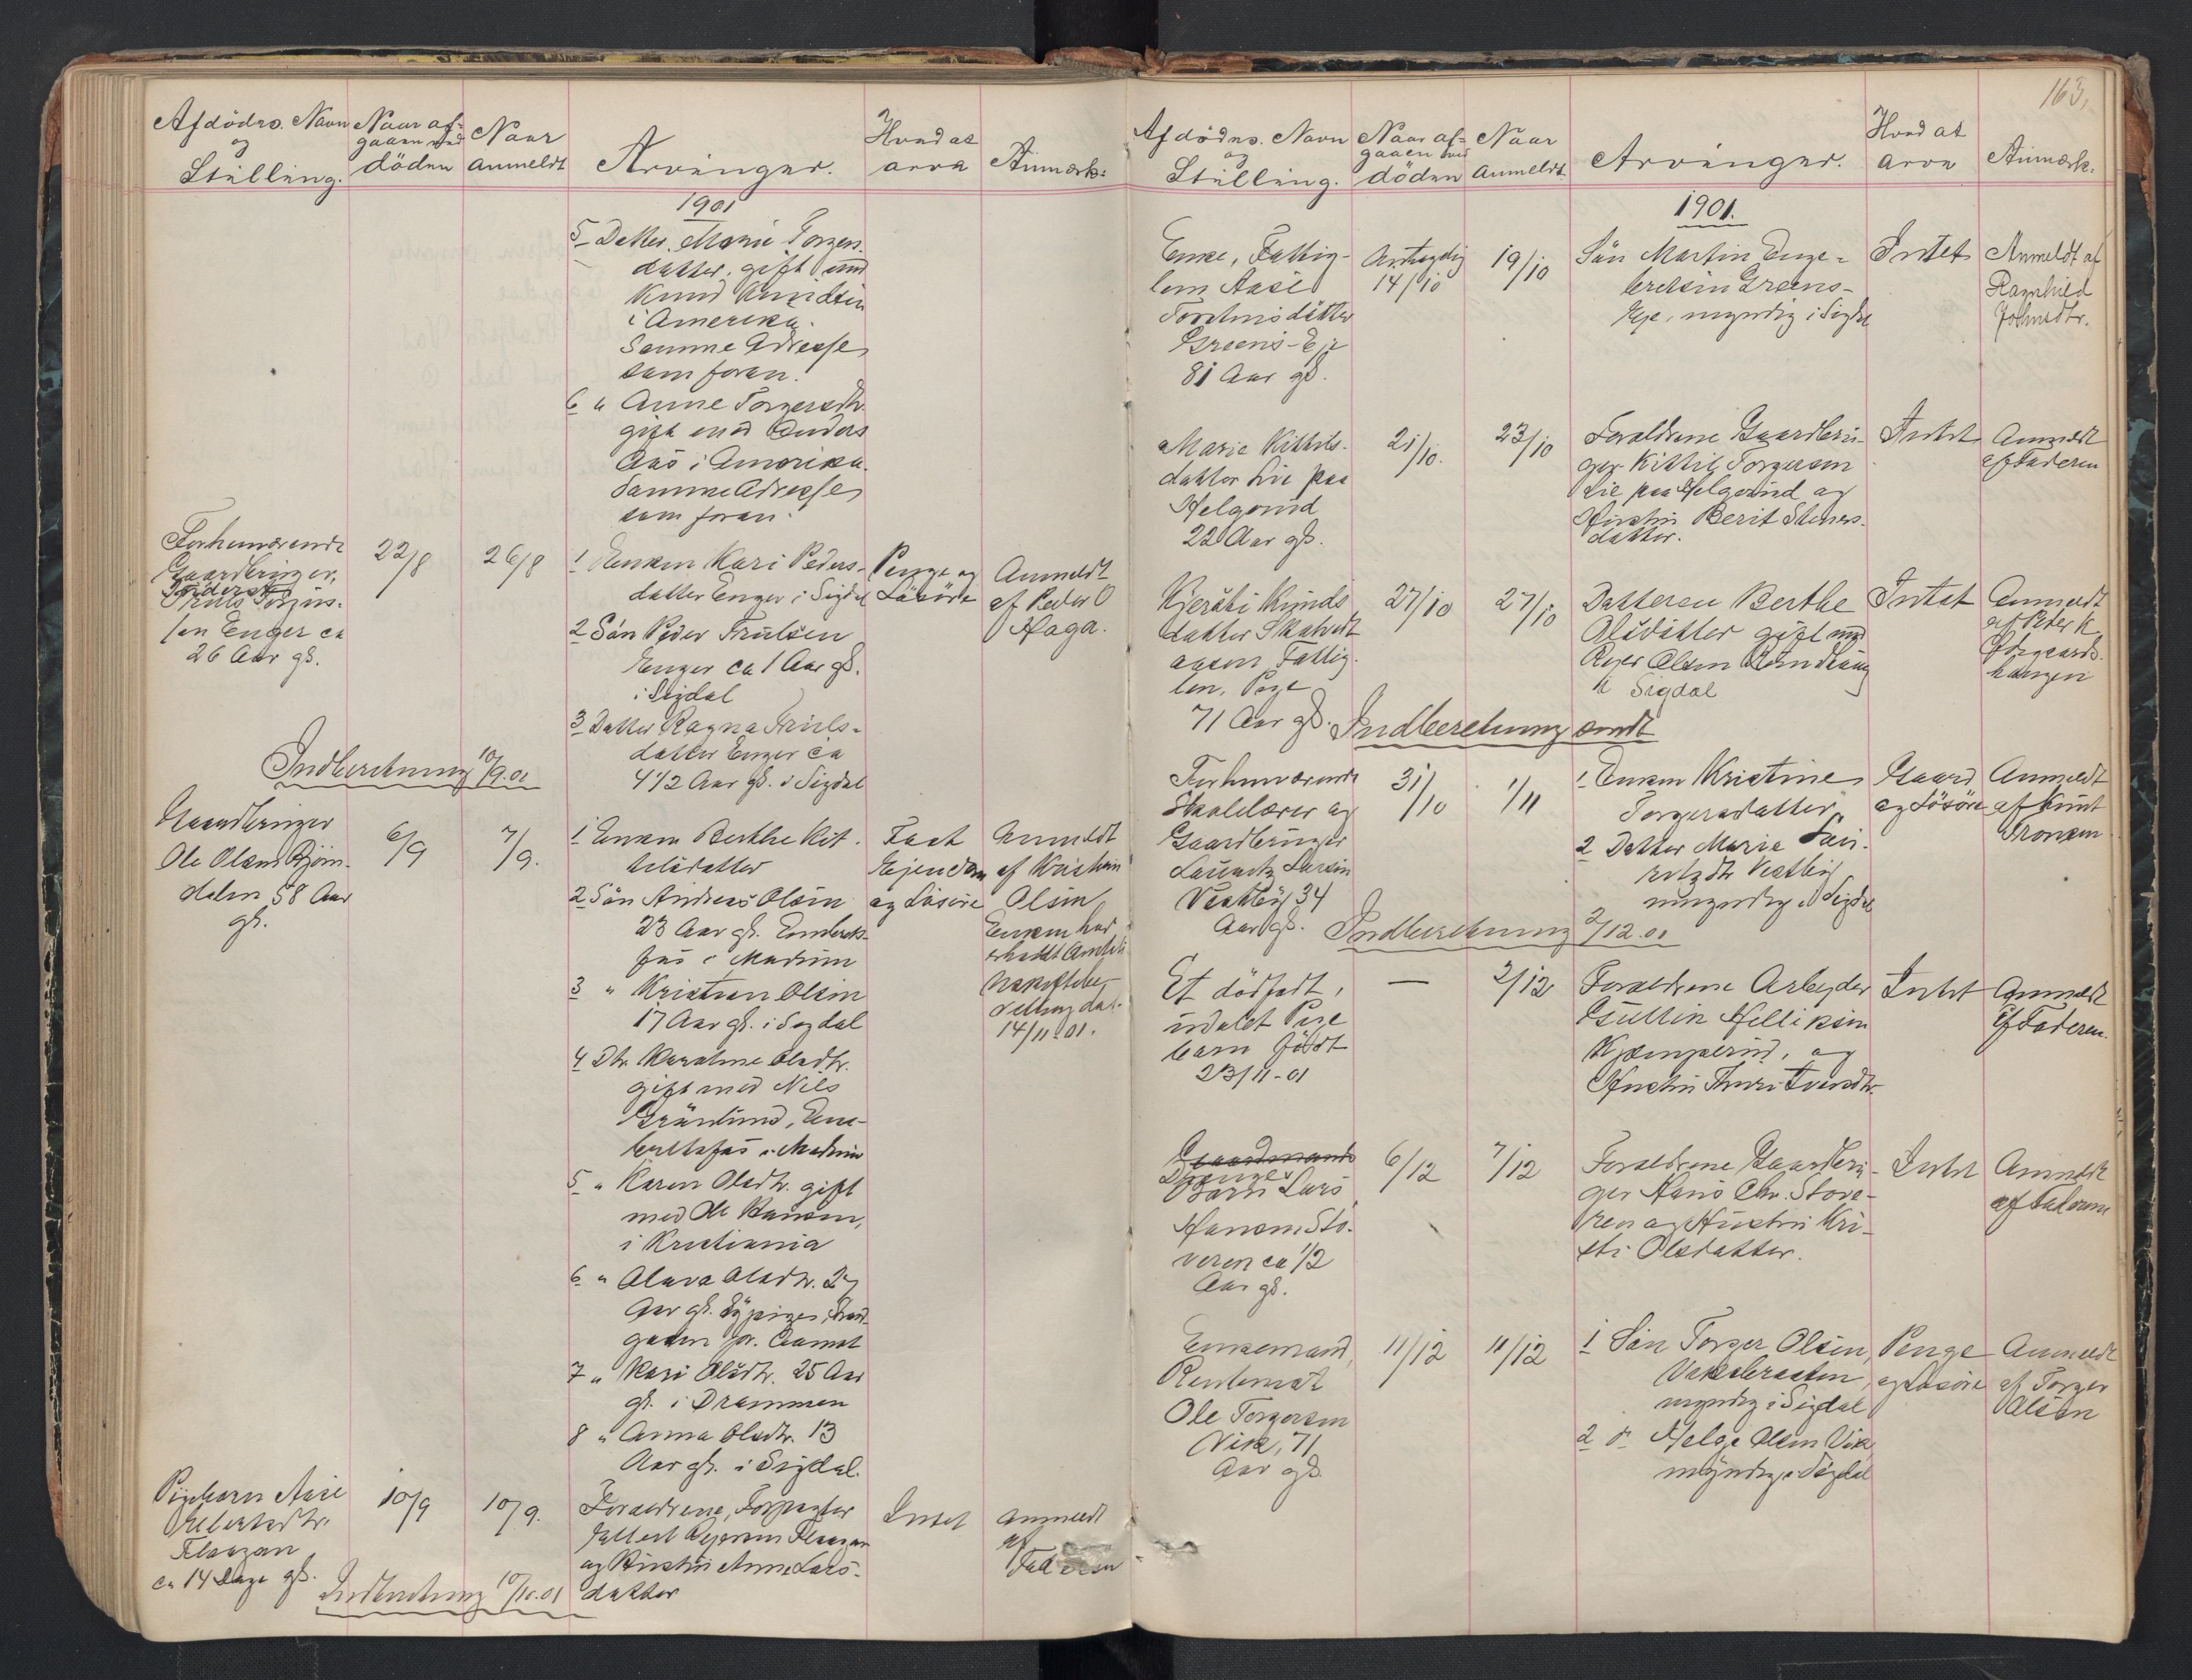 163.
Afdödes Navn
og
Stilling.
Naar af-
gaaen ved
döden
Naar
anmeldt
Arvinger.
Hvad at
arve
Anmærk:
1901
5 Datter Marie Torgers-
datter, gift med
Knud Knudsen
i Amerika.
Samme Adresse
som foran.
6 " Anne Torgersdtr.
gift med Anders
Aas i Amerika.
Samme Adresse
som foran.
Forhenværende
Gaardbruger,
Truls
sen Enger ca
26 Aar gl.
22/8
26/8
1 Enken Kari Peders-
datter Enger i Sigdal
2 Sön Peder Trulsen
Enger ca 1 Aar gl.
i Sigdal
3 Datter Ragna Truls-
datter Enger ca
4 1/2 Aar gl. i Sigdal
Penge og
Lösöre
Anmeldt
af Peder O
Haga.
Indberetning 10/9.01
Gaardbruger
Ole Olsen Björn-
dalen 58 Aar
gl.
6/9
7/9.
1 Enken Berthe Kit-
telsdatter
2 Sön Andreas Olsen
23 Aar gl. Embrets-
fos i Modum
3 " Kristian Olsen
17 Aar gl. i Sigdal
4 Dtr. Karoline Olsdtr.
gift med Nils
Grönlund, Em-
bretsfos i Modum
5 " Karen Olsdtr. gift
med Ole Hansen,
i Kristiania
6 " Olava Olsdtr. 27
Aar gl.
7 " Kari Olsdtr. 25 Aar
gl. i Drammen
8 " Anna Olsdtr. 13
Aar gl. i Sigdal.
Fast
Ejendom
og Lösöre
Anmeldt
af Kristian
Olsen
Enken har
erholdt
14/11-01.
Pigebarn Aase
ca 14 Dage gl.
10/9
10/9.
Forældrene, Forpagter
og Hustru Anne Lars-
datter
Intet
anmeldt
af
Faderen
Indberetning 10/10.01
Afdödes Navn
og
Stilling.
Naar af-
gaaen ved
döden
Naar
anmeldt.
Arvinger.
Hvad at
arve
Anmærk.
1901.
Enke, Fattig-
lem Aase
Torstensdatter
Greens-Eje
81 Aar gl.
Antagelig
14/10
19/10
Sön Martin Enge-
bretsen Greens-
Eje, myndig i Sigdal
Intet
Anmeldt af
Ragnhild
Johnsdtr.
Marie Kittils-
datter Lie paa
Helgerud
22 Aar gl.
21/10.
23/10
Forældrene Gaardbru-
ger Kittil Torgersen
Lie paa Helgerud og
Hustru Berit Steners-
datter.
Intet
Anmeldt
af Faderen
Kjersti Knuds
datter Skatvedt
Fattig-
lem, Pige
71 Aar gl.
27/10
27/10
Datteren Berthe
Olsdatter gift med
i Sigdal
Intet
Anmeldt
af Peder K
Indberetning sendt
Forhenværende
Skolelærer og
Gaardbruger
Lauritz Larsen
Vestby 34
Aar gl.
31/10
1/11
1 Enken Kristine
Torgersdatter
2 Datter Marie Lau-
ritzdtr. Vestby
umyndig i Sigdal
Gaard
og Lösöre
Anmeldt
af Knut
Indberetning 2/12.01
Et dödfödt,
udöbt Pige
barn födt
23/11-01
—
2/12
Forældrene Arbejder
Gullik Helliksen
Kjemperud, og
Hustru Thuri
Intet
Anmeldt
af Faderen.
Gaardmands
Drenge
Barn Lars
Hansen Sto-
veren ca 1/2
Aar gl.
6/12
7/12
Forældrene Gaardbru-
ger Hans Chr. Stove-
ren og Hustru Kri-
sti Olsdatter.
Intet
Anmeldt
af Faderen
Enkemand,
Rentenist
Ole Torgersen
Vik, 71
Aar gl.
11/12
11/12
1 Sön Torger Olsen
myndig i Sigdal
2 do Helge Olsen Vik
myndig i Sigdal
Penge
og Lösöre
Anmeldt
af Torger
Olsen